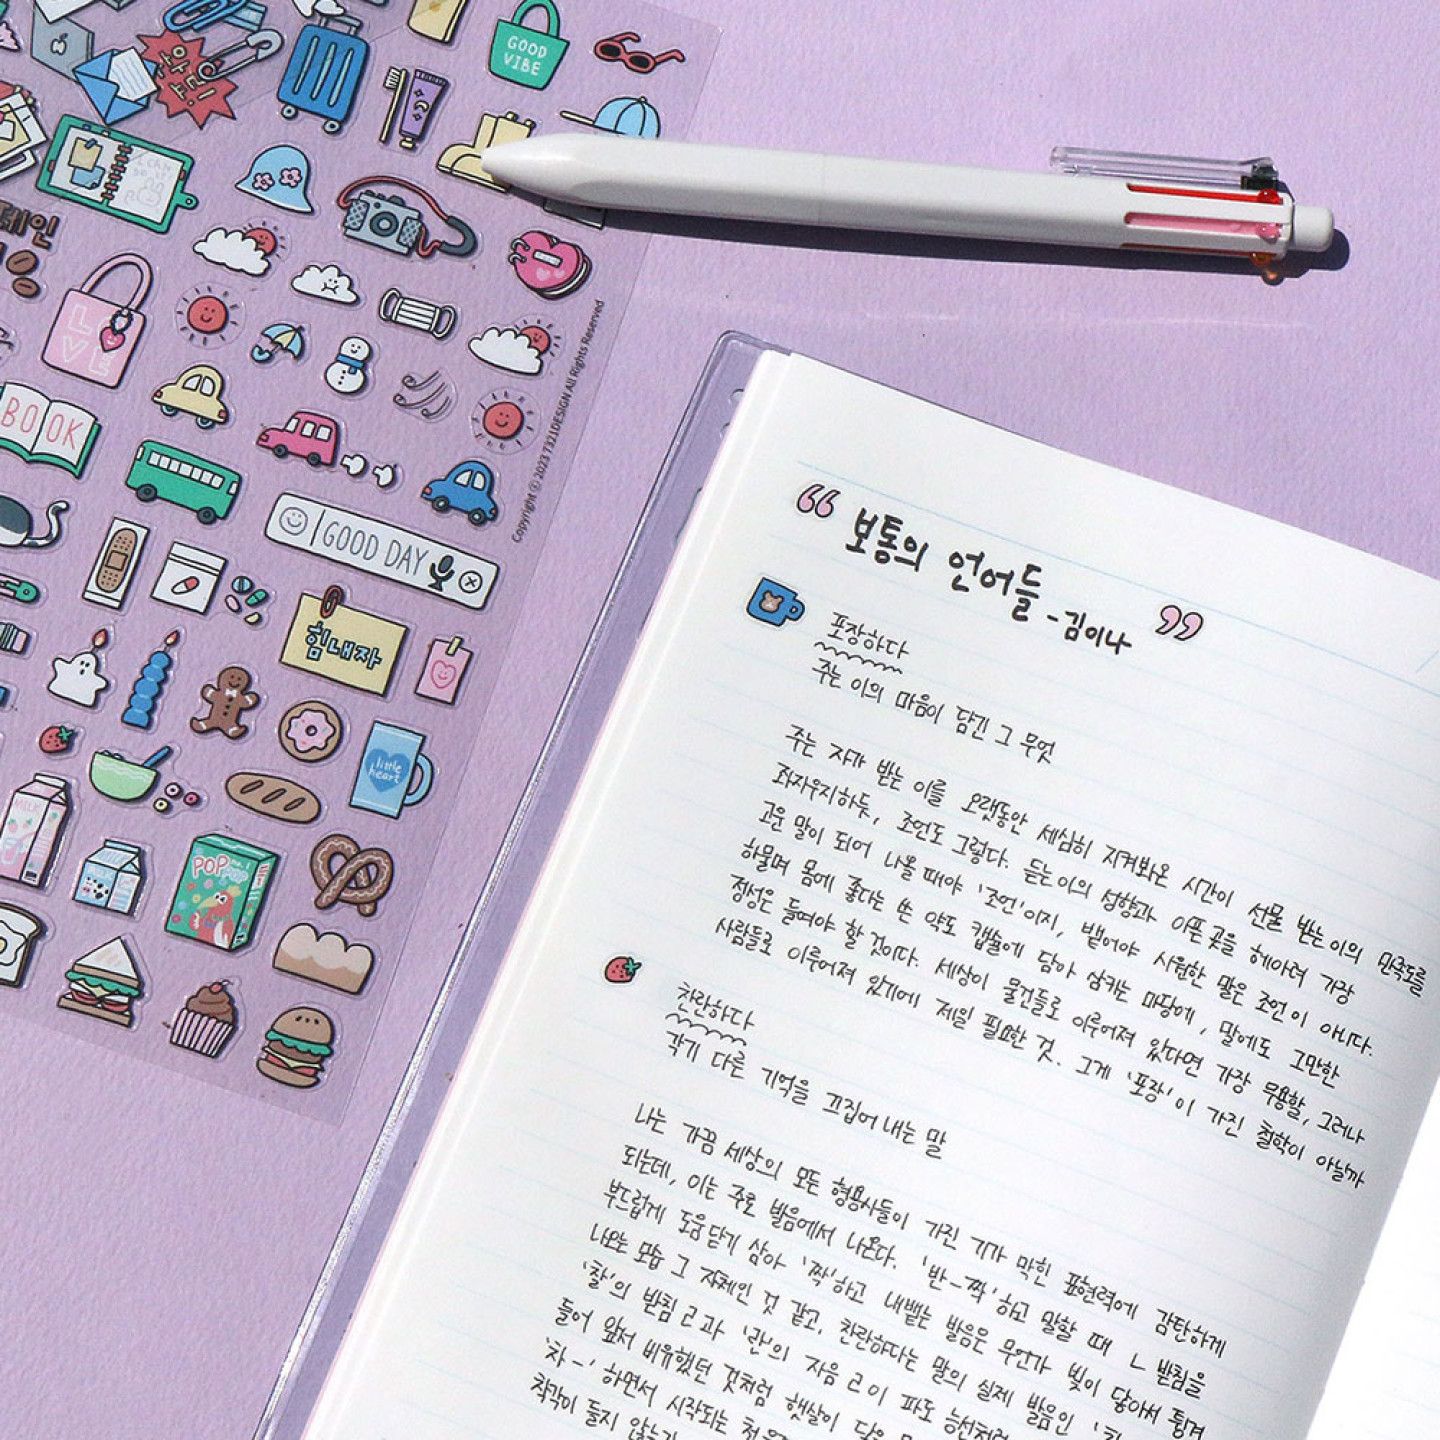 GOOD
VIBE
LOVE
BOOK
GOOD DAY
힘내자
little
heart
MILK
MILK
POP
POP
Copyright ⓒ 2023 7321DESIGN All Rights Reserved
“ 보통의 언어들 - 김이나 ”
포장하다
주는 이의 마음이 담긴 그 무엇
주는 자가 받는 이를 오랫동안 세심히 지켜봐온 시간이 선물 받는 이의 만족도를
좌지우지하듯, 조언도 그렇다. 듣는 이의 성향과 아픈 곳을 헤아려 가장
고운 말이 되어 나올 때야 '조언'이지, 뱉어야 시원한 말은 조언이 아니다.
하물며 몸에 좋다는 쓴 약도 캡슐에 담아 삼키는 마당에, 말에도 그만한
정성은 들여야 할 것이다. 세상이 물건들로 이루어져 있다면 가장 무용할, 그러나
사람들로 이루어져 있기에 제일 필요한 것. 그게 '포장'이 가진 철학이 아닐까
찬란하다
각기 다른 기억을 끄집어내는 말
나는 가끔 세상의 모든 형용사들이 가진 기가 막힌 표현력에 감탄하게
되는데, 이는 주로 발음에서 나온다. '반-짝'하고 말할 때 ㄴ 받침을
부드럽게 도움닫기 삼아 '짝'하고 내뱉는 발음은 무언가 빛이 닿아서 튕겨
나오는 모습 그 자체인 것 같고, 찬란하다는 말의 실제 발음인
'찰'의 받침 ㄹ과 '란'의 자음 ㄹ이 파도 능선처럼
들어 앞서 비유했던 것처럼 햇살이 닿은
'차-'하면서 시작되는 첫 음
착각이 들지 않는가